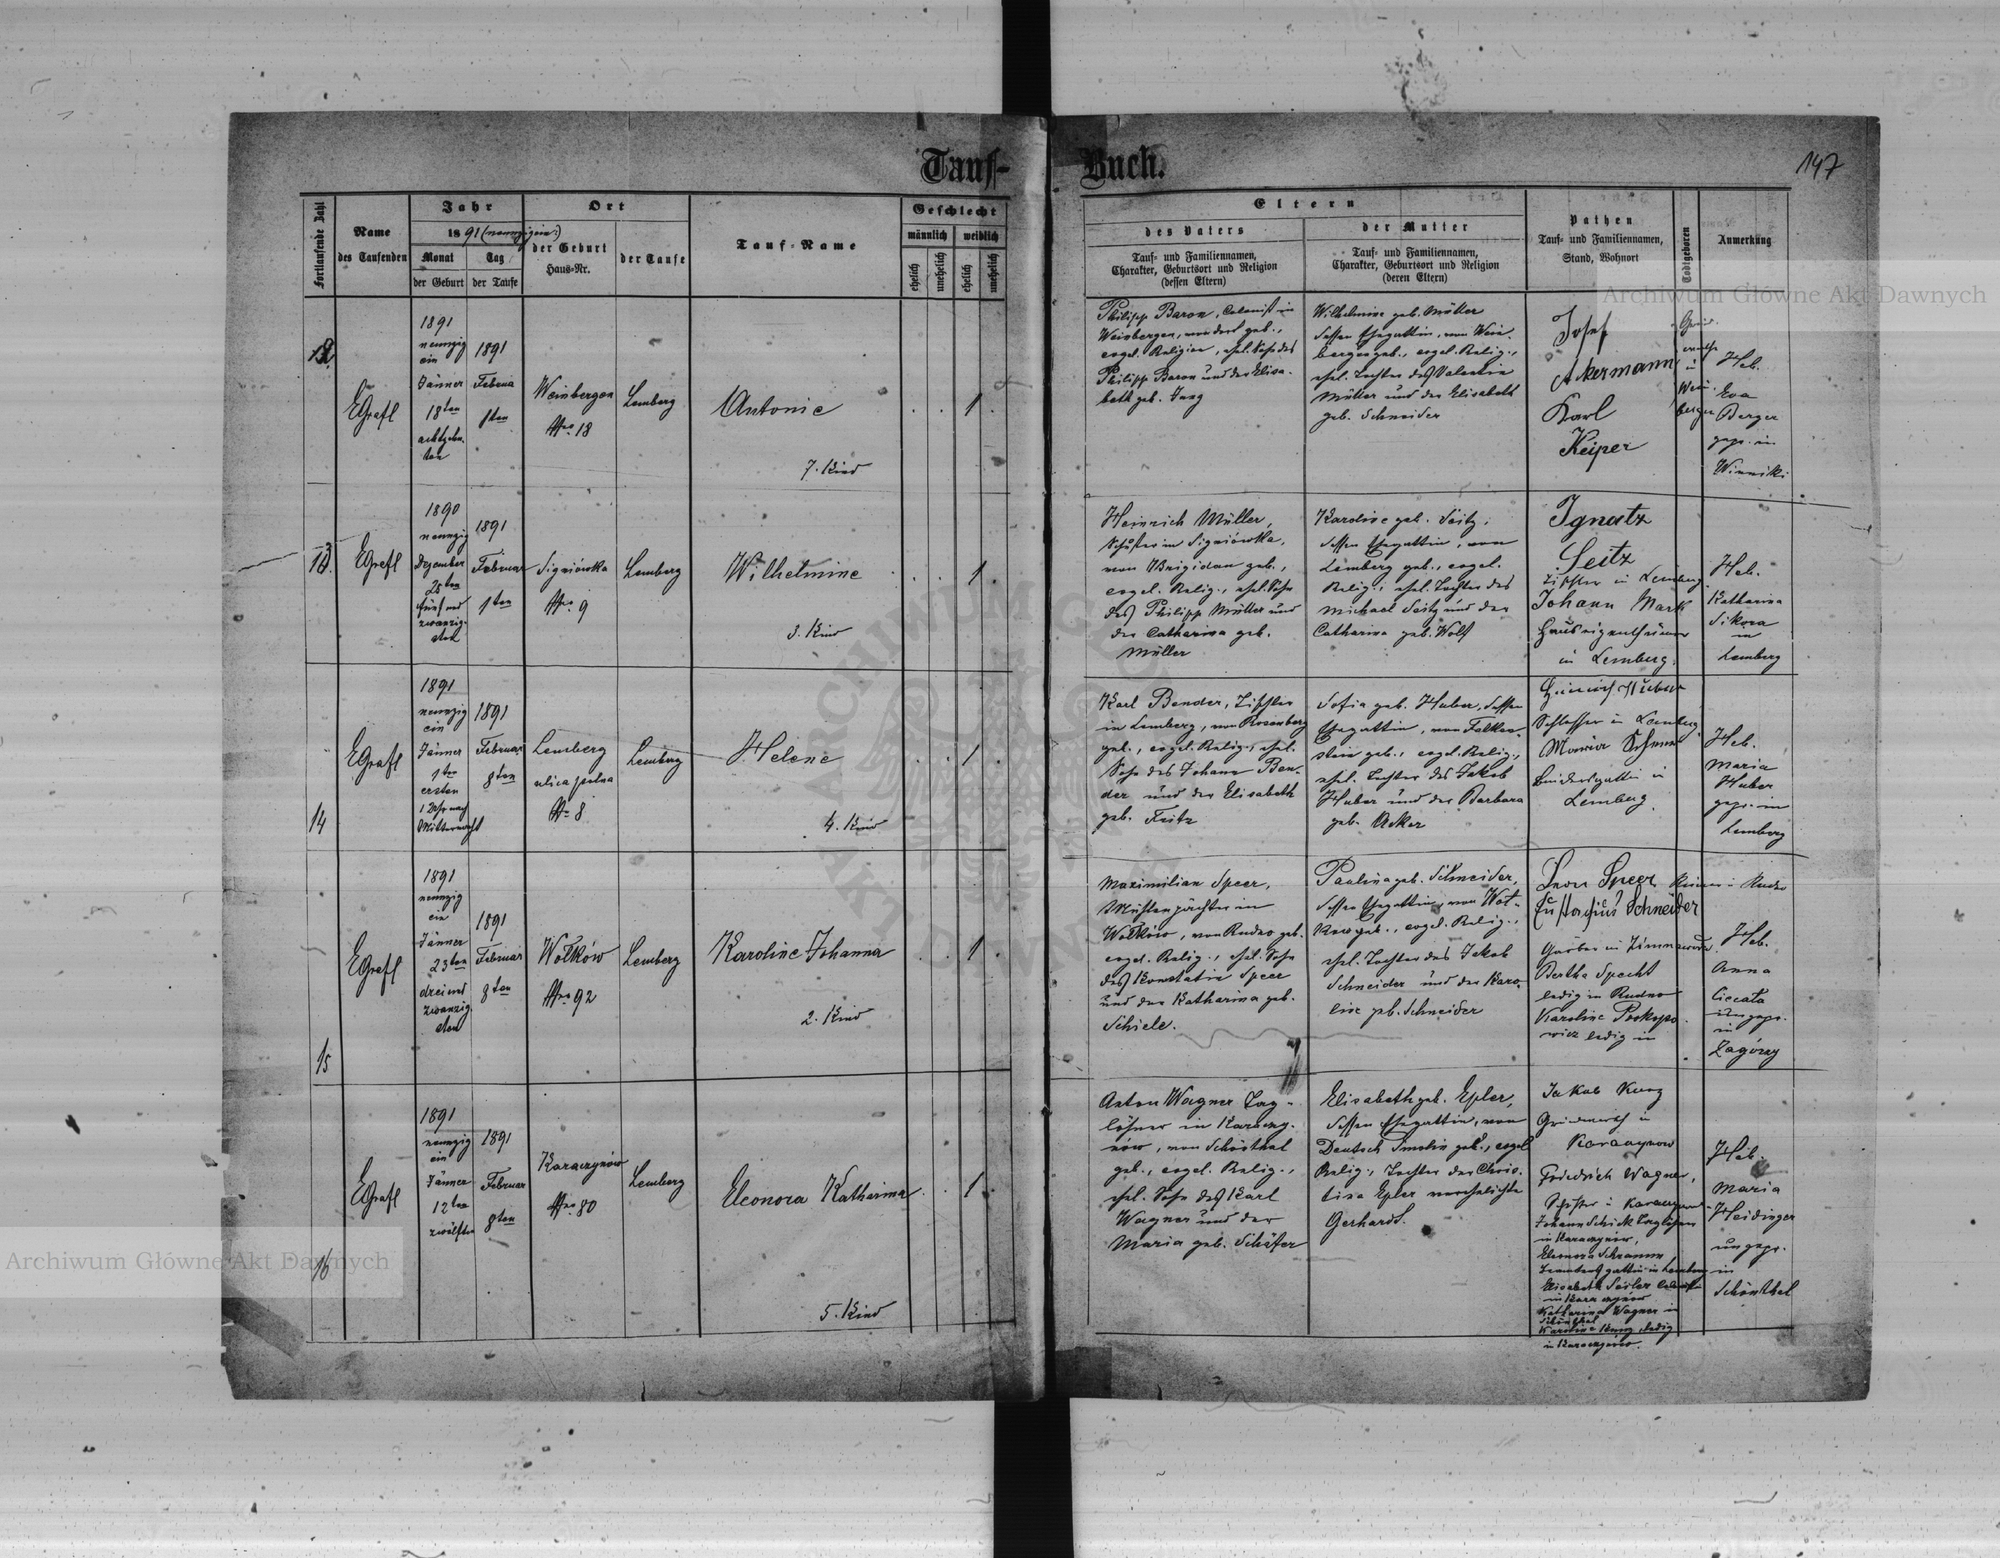 Tauf-
Buch.
147
Fortlaufende Zahl
Name
des Taufenden
Jahr
1891 (neunzigein:)
Monat
der Geburt
Tag
der Taufe
Ort
der Geburt
Haus-Nr.
der Taufe
Tauf-Name
Geschlecht
männlich
weiblich
ehelich
unehelich
ehelich
unehelich
Eltern
des Vaters
Tauf- und Familiennamen,
Charakter, Geburtsort und Religion
(dessen Eltern)
der Mutter
Tauf- und Familiennamen,
Charakter, Geburtsort und Religion
(deren Eltern)
Pathen
Tauf- und Familiennamen,
Stand, Wohnort
Todtgeboren
Anmerkung
12.
EGrafl
1891
neunzig
ein
Jänner
18ten
achtzehn
ten
1891
Februa
1ten
Weinbergen
Nro 18
Lemberg
Antonie
7. Kind
1
Philipp Baron, Colonist in
Weinbergen, von dort geb.,
evgel. Religion, ehel. Sohn des
Philipp Baron und der Elisa-
beth geb. Jung
Wilhelmine geb. Müller
dessen Ehegattin, von Wein-
bergen geb., evgel. Relig.,
ehel. Tochter des Valentin
Müller und der Elisabeth
geb. Schneider
Josef
Ackermann
Karl
Keiper
Heb.
Eva
Berger
gepr. in
Winniki
13.
EGrafl
1890
neunzig
Dezember
25ten
fünf und
zwanzig-
sten
1891
Februar
1ten
Signiówka
Nro 9
Lemberg
Wilhelmine
3. Kind
1
Heinrich Müller,
Schuster in Signiówka,
von Brigidau geb.,
evgel. Relig., ehel. Sohn
des Philipp Müller und
der Catharina geb.
Müller
Karoline geb. Seitz,
dessen Ehegattin, von
Lemberg geb., evgel.
Relig., ehel. Tochter des
Michael Seitz und der
Catharina geb. Wolf
Ignatz
Seitz
Tischler in Lemberg
Johann Mark
Hauseigenthümer
in Lemberg.
Heb.
Katharina
Sikora
in
Lemberg
14
EGrafl
1891
neunzig
ein
Jänner
1ten
ersten
1 Uhr nach
Mitternacht
1891
Februar
8ten
Lemberg
ulica polna
Nr 8
Lemberg
Helene
4. Kind
1
Karl Bender, Tischler
in Lemberg, von Rosenberg
geb., evgel. Relig., ehel.
Sohn des Johann Ben-
der und der Elisabeth
geb. Fritz
Sofia geb. Huber, dessen
Ehegattin, von Falken-
stein geb., evgel. Relig.,
ehel. Tochter des Jakob
Huber und der Barbara
geb. Acker
Heinrich Huber
Schlosser in Lemberg
in
Lemberg.
Heb.
Maria
Huber
gepr. in
Lemberg
15
EGrafl
1891
neunzig
ein
Jänner
23ten
drei und
zwanzig-
sten
1891
Februar
8ten
Wołków
Nro 92
Lemberg
Karoline Johanna
2. Kind
1
Maximilian Speer,
Mühlenpächter in
Wołków, von Rudno geb.
evgel. Relig., ehel. Sohn
des Konstatin Speer
und der Katharina geb.
Schiele.
Paulina geb. Schneider,
dessen Ehegattin, von Woł-
kow geb., evgel. Relig.,
ehel. Tochter des Jakob
Schneider und der Karo-
line geb. Schneider
Leon Speer
Eustachius Schneider
Bertha Specht
ledig in Rudno
Karoline Prokopo-
wicz ledig in
Heb.
Anna
Ciecata
ungepr.
in
Zagórzy
16
EGrafl
1891
neunzig
ein
Jänner
12ten
zwölften
1891
Februar
8ten
Karaczynów
Nro 80
Lemberg
Eleonora Katharina
5. Kind
1
Anton Wagner Tag-
löhner in Karaczy-
nów, von Schönthal
geb., evgel. Relig.,
ehel. Sohn des Karl
Wagner und der
Maria geb. Schäfer
Elisabeth geb. Epler,
dessen Ehegattin, von
Deutsch Smolin geb., evgel
Relig., Tochter der Chris-
tina Epler verehelichte
Gerhardt.
Jakob Kurz
Grundwirth in
Karaczynow
Friedrich Wagner,
Schuster in Karaczynow
Johann Schick Taglöhner
in Karaczynow,
Eleonora Schramm,
Elisabeth Seiler
in Karaczynów
Katharina Wagner in
Schönthal
Karoline Kurz ledig
in Karaczynów.
Heb.
Maria
Heidinger
ungepr.
in
Schönthal
Archiwum Główne Akt Dawnych
Archiwum Główne Akt Dawnych